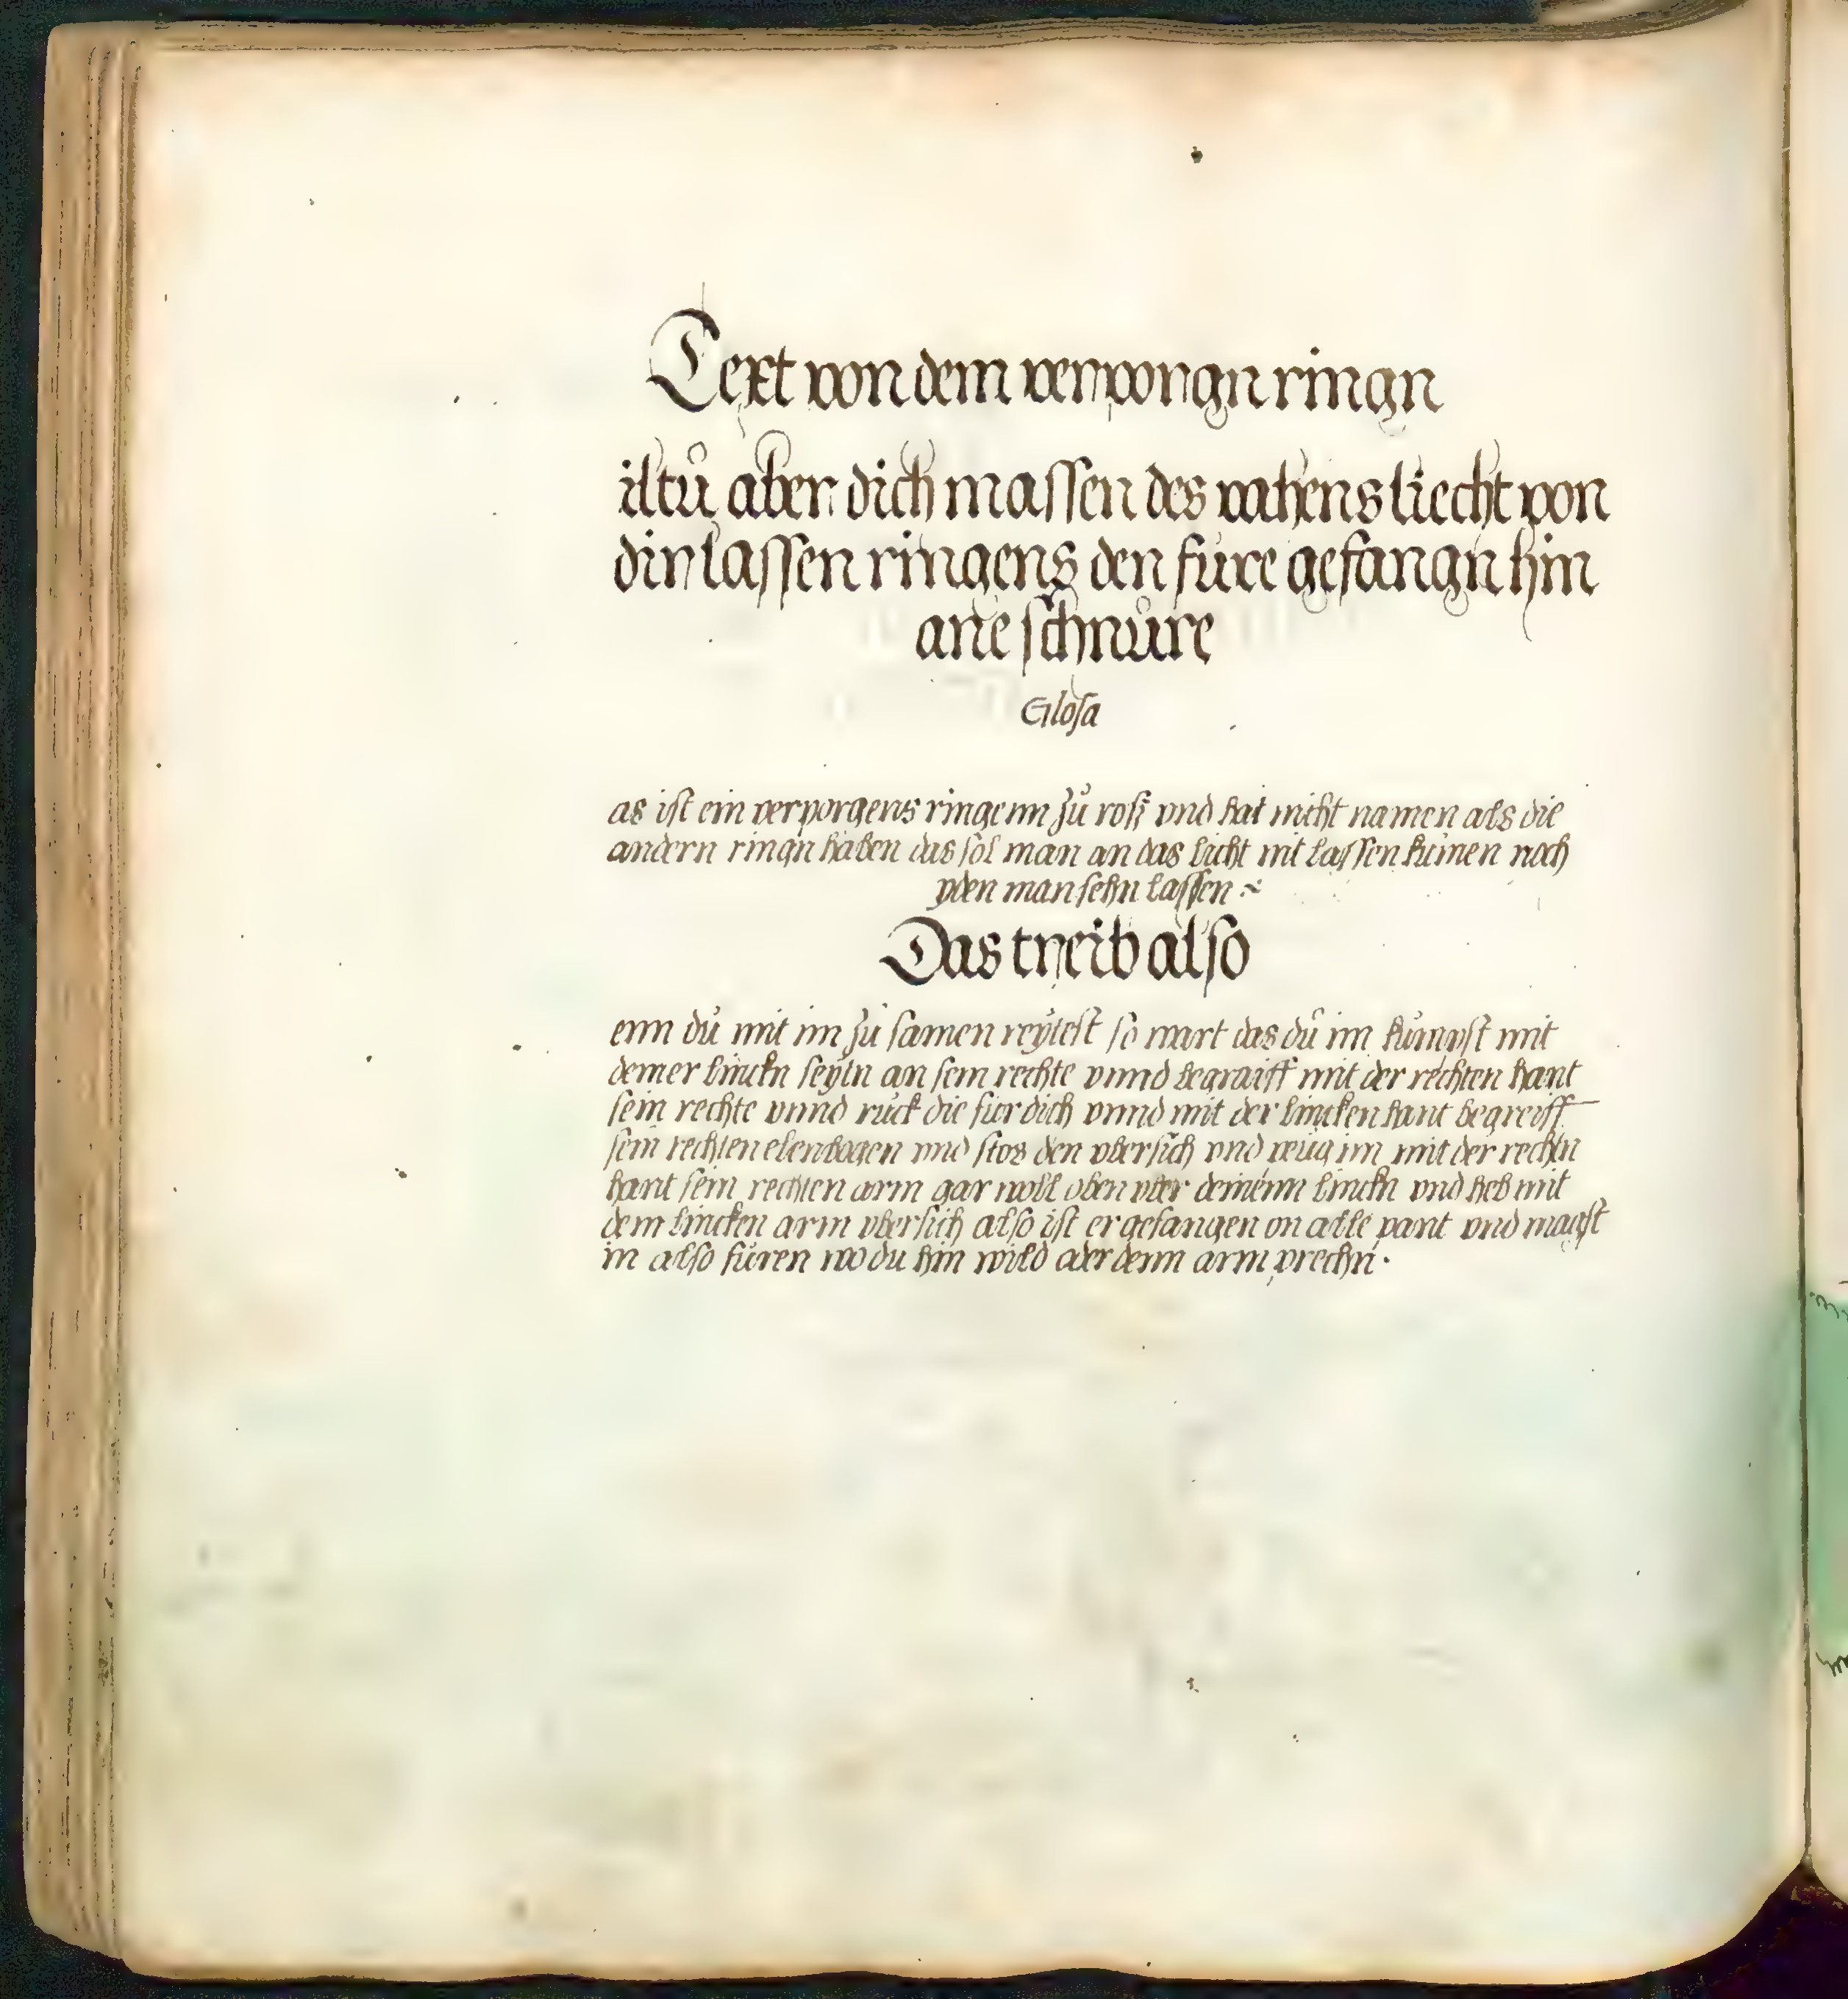 Text von dem verporgn ringn
iltu aber dich massen des vahens liecht von
dir lassen ringens den fure gefangn hin
ane schnure
Glosa
as ist ein verporgens ringenn zu ross vnd hat nicht namen als die
andern ringn haben das sol man an das licht nit lassen kumen noch
yden man sehn lassen
Das treib also
enn du mit im zu samen reytest so wart das du im kumpst mit
deiner linckn seytn an sein rechte vnnd begraiff mit der rechten hant
sein rechte vnnd ruck die fur dich vnnd mit der lincken hant begreiff
sein rechten elenbogen vnd stos den vbersich vnd peug im mit der rechtn
hant sein rechten arm gar woll oben vber deinenn linckn vnd heb mit
dem lincken arm vbersich also ist er gefangen on alle pant vnd magst
in also furen wo du hin wild oder denn arm prechn